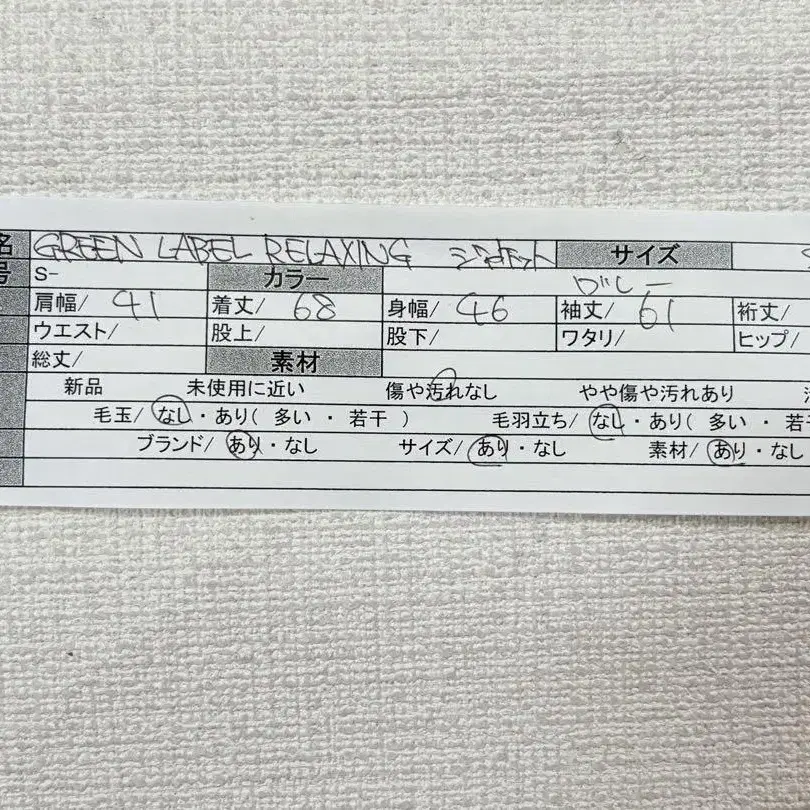 名 GREEN LABEL RELAXING ジャケット サイズ
号 S- カラー グレー
肩幅/ 41 着丈/ 68 身幅/ 46 袖丈/ 61 裄丈/
ウエスト/ 股上/ 股下/ ワタリ/ ヒップ/
総丈/ 素材
新品 未使用に近い 傷や汚れなし やや傷や汚れあり
毛玉/ なし・あり( 多い ・ 若干 ) 毛羽立ち/ なし・あり( 多い ・ 若干
ブランド/ あり・なし サイズ/ あり・なし 素材/ あり・なし